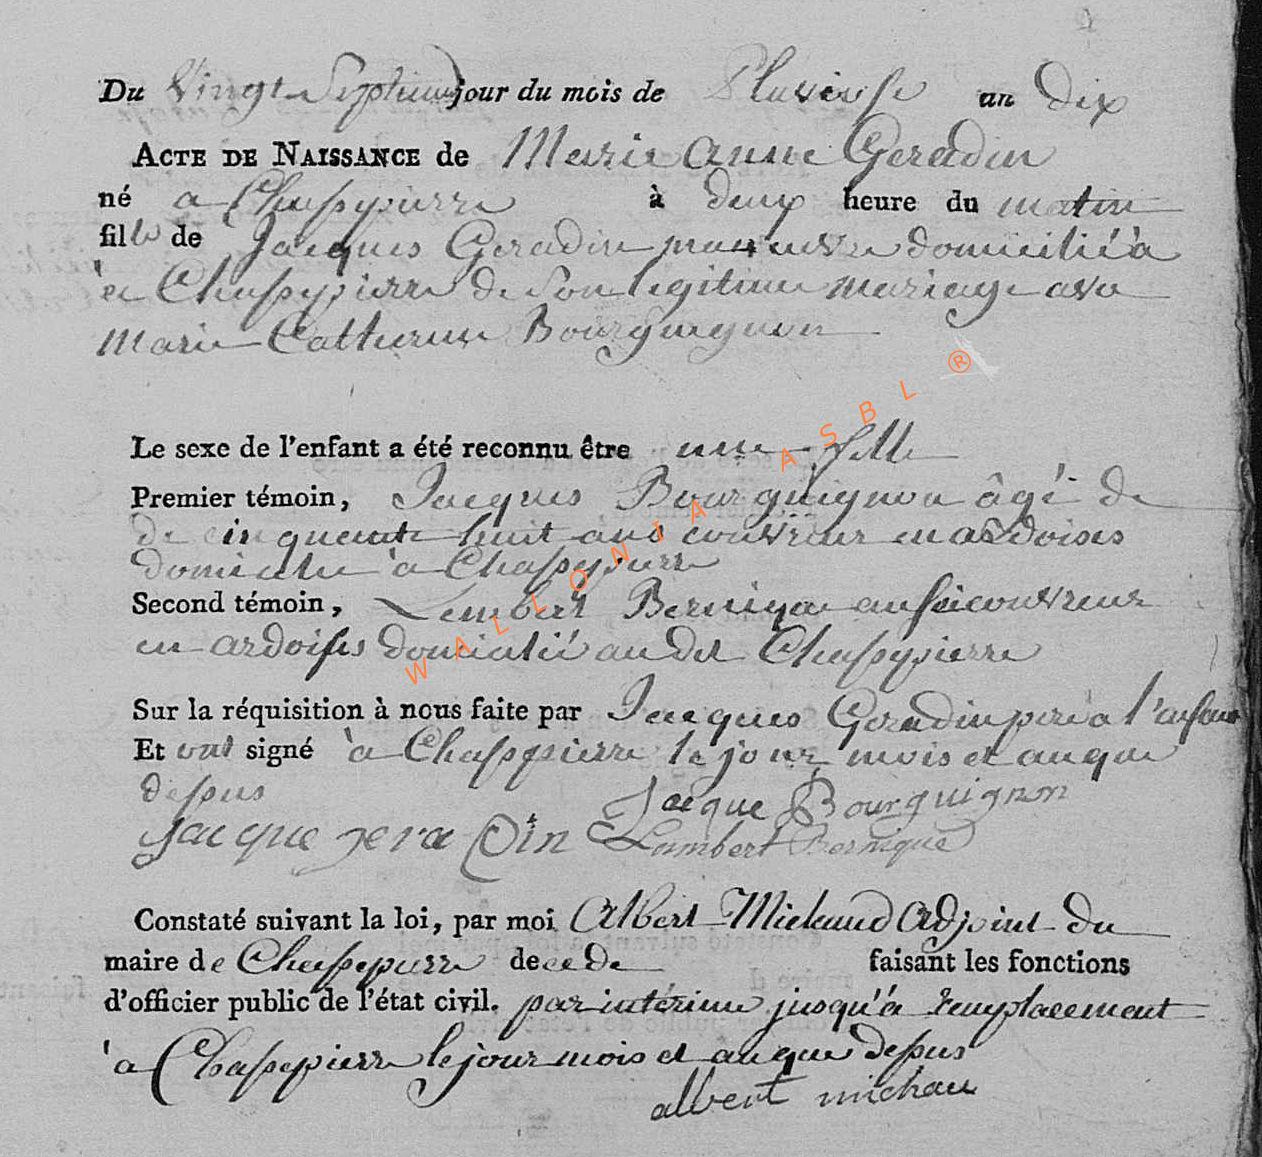 Du Vingt Septieme jour du mois de Pluviose an dix
ACTE DE NAISSANCE de Marie Anne Geradin
né a Chassepierre à deux heure du matin
fille de Jacques Geradin manœuvre domicilié à
à Chassepierre de son legitime mariage avec
Marie Catherine Bourguignon
Le sexe de l'enfant a été reconnu être une fille
Premier témoin, Jacques Bourguignon âgé de
de cinquante huit ans couvreur en ardoises
domicilié à Chassepierre
Second témoin, Lambert Bernique aussi couvreur
en ardoises domicilié au dit Chassepierre
Sur la réquisition à nous faite par Jacques Geradin pere a l'enfant
Et ont signé à Chassepierre le jour mois et an que
dessus
Jacque Bourguignon
Jacque jeradin Lambert Bernique
Constaté suivant la loi, par moi Albert Michaud Adjoint du
maire de Chassepierre decede faisant les fonctions
d'officier public de l'état civil. par intérime jusqu'à remplacement
à Chassepierre le jour mois et an que dessus
albert michau
WALLONIA ASBL ®